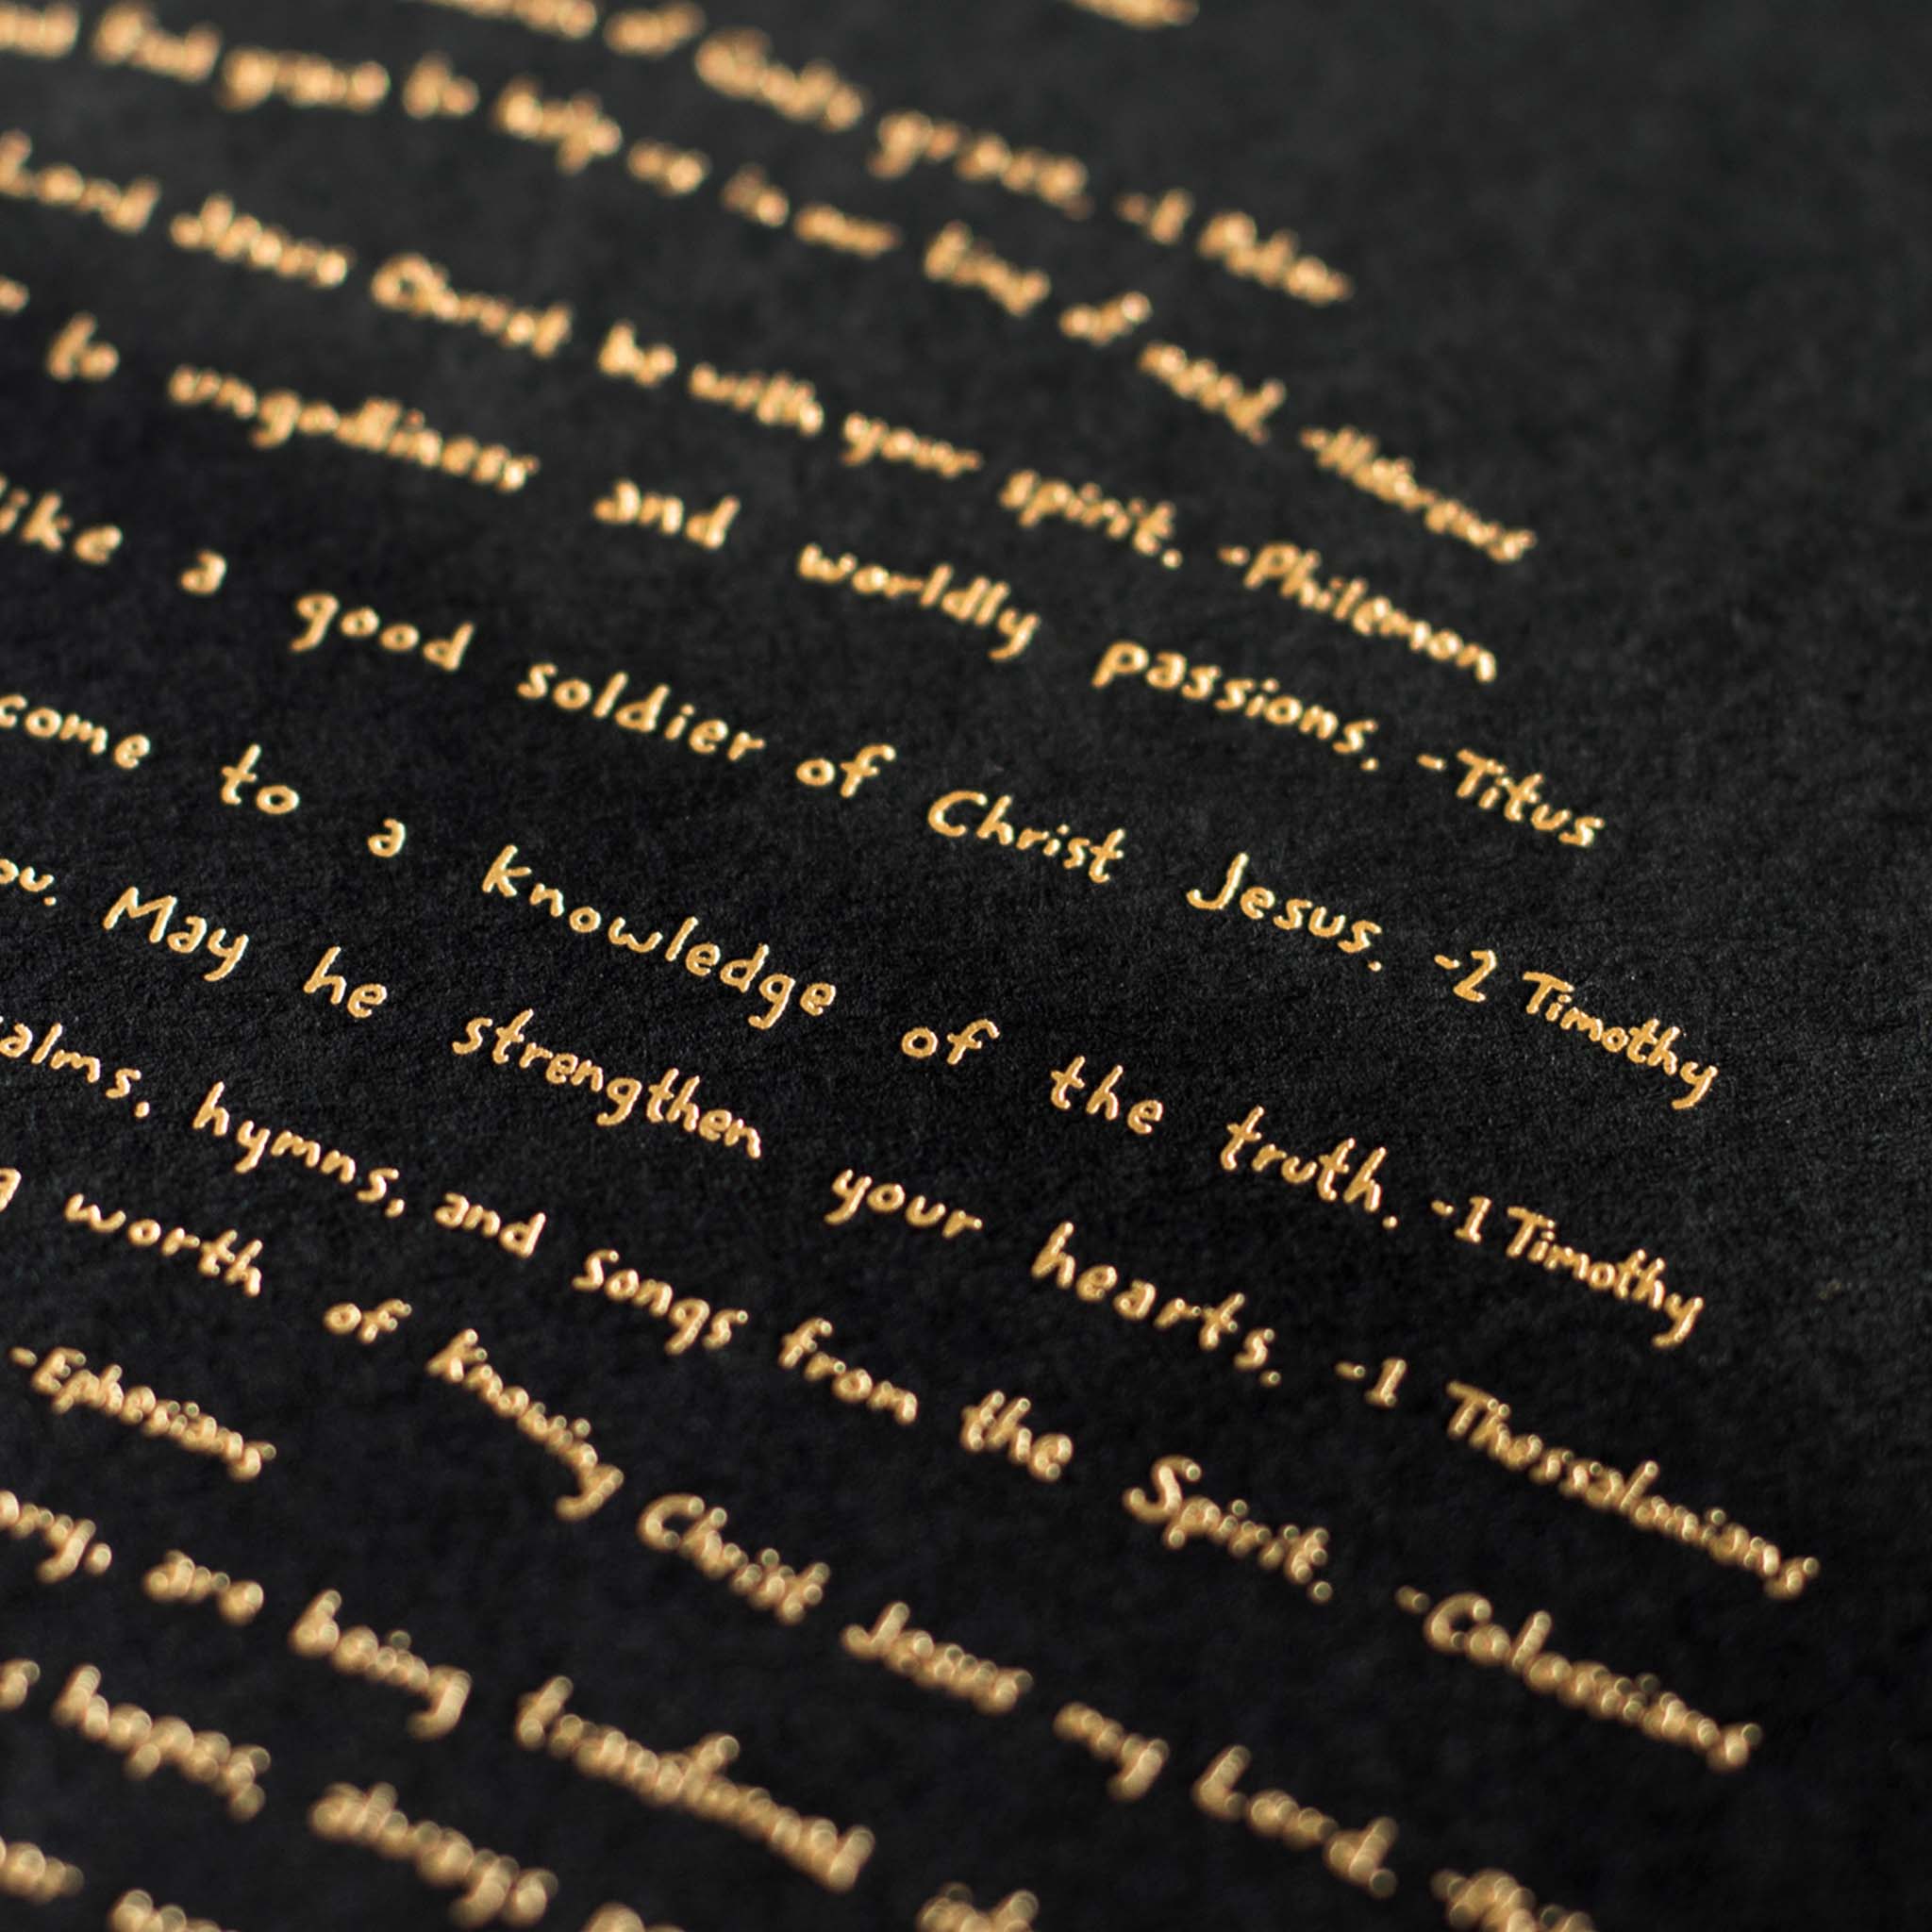 of God's grace. -1 Peter
find grace to help us in our time of need. -Hebrews
Lord Jesus Christ be with your spirit. -Philemon
to ungodliness and worldly passions. -Titus
like a good soldier of Christ Jesus. -2 Timothy
come to a knowledge of the truth. -1 Timothy
ou. May he strengthen your hearts. -1 Thessalonians
salms, hymns, and songs from the Spirit. -Colossians
g worth of knowing Christ Jesus my Lord.
-Ephesians
ory, are being transformed
hopes, always